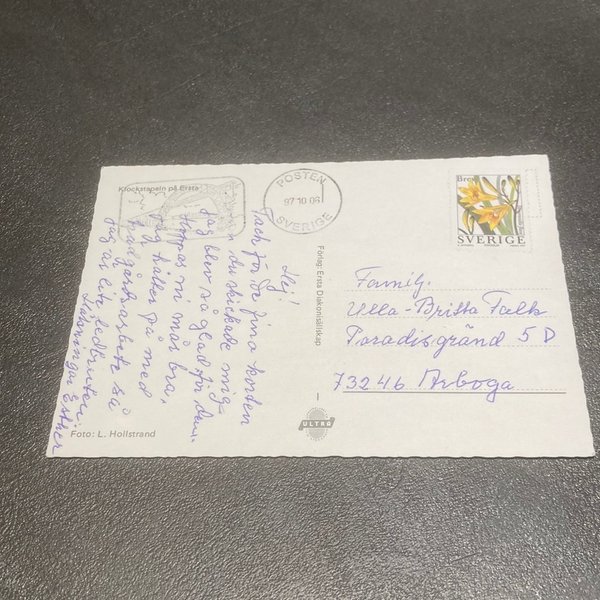 Klockstapeln på Ersta
POSTEN
97 10 06
SVERIGE
Brev
SVERIGE
Hej!
Tack för de fina korten
du skickade mig
Jag blev så glad för dem.
Hoppas ni mår bra,
jag håller på med
trädgårdsarbete så
jag är lite ledbruten.
Hälsningar Esther
Förlag: Ersta Diakonisällskap
ULTRA
Familj.
Ulla-Britta Falk
Paradisgränd 5 D
73246 Arboga
Foto: L. Hollstrand